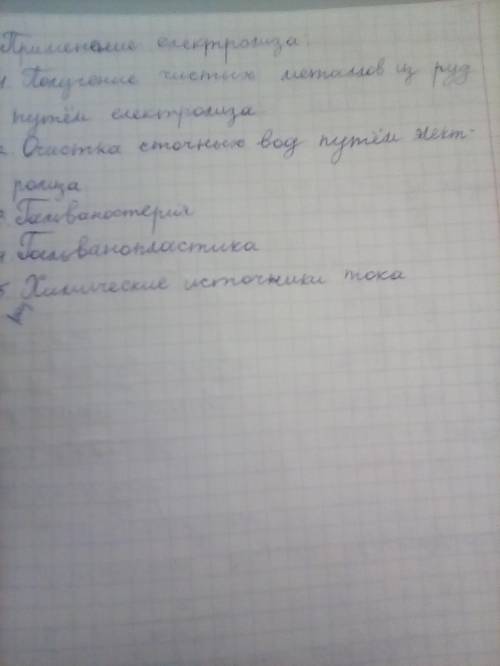 Применение електролиза:
1. Получение чистых металлов из руд
путём електролиза
2. Очистка сточных вод путём элект-
ролиза
3. Гальваностерия
4. Гальванопластика
5. Химические источники тока